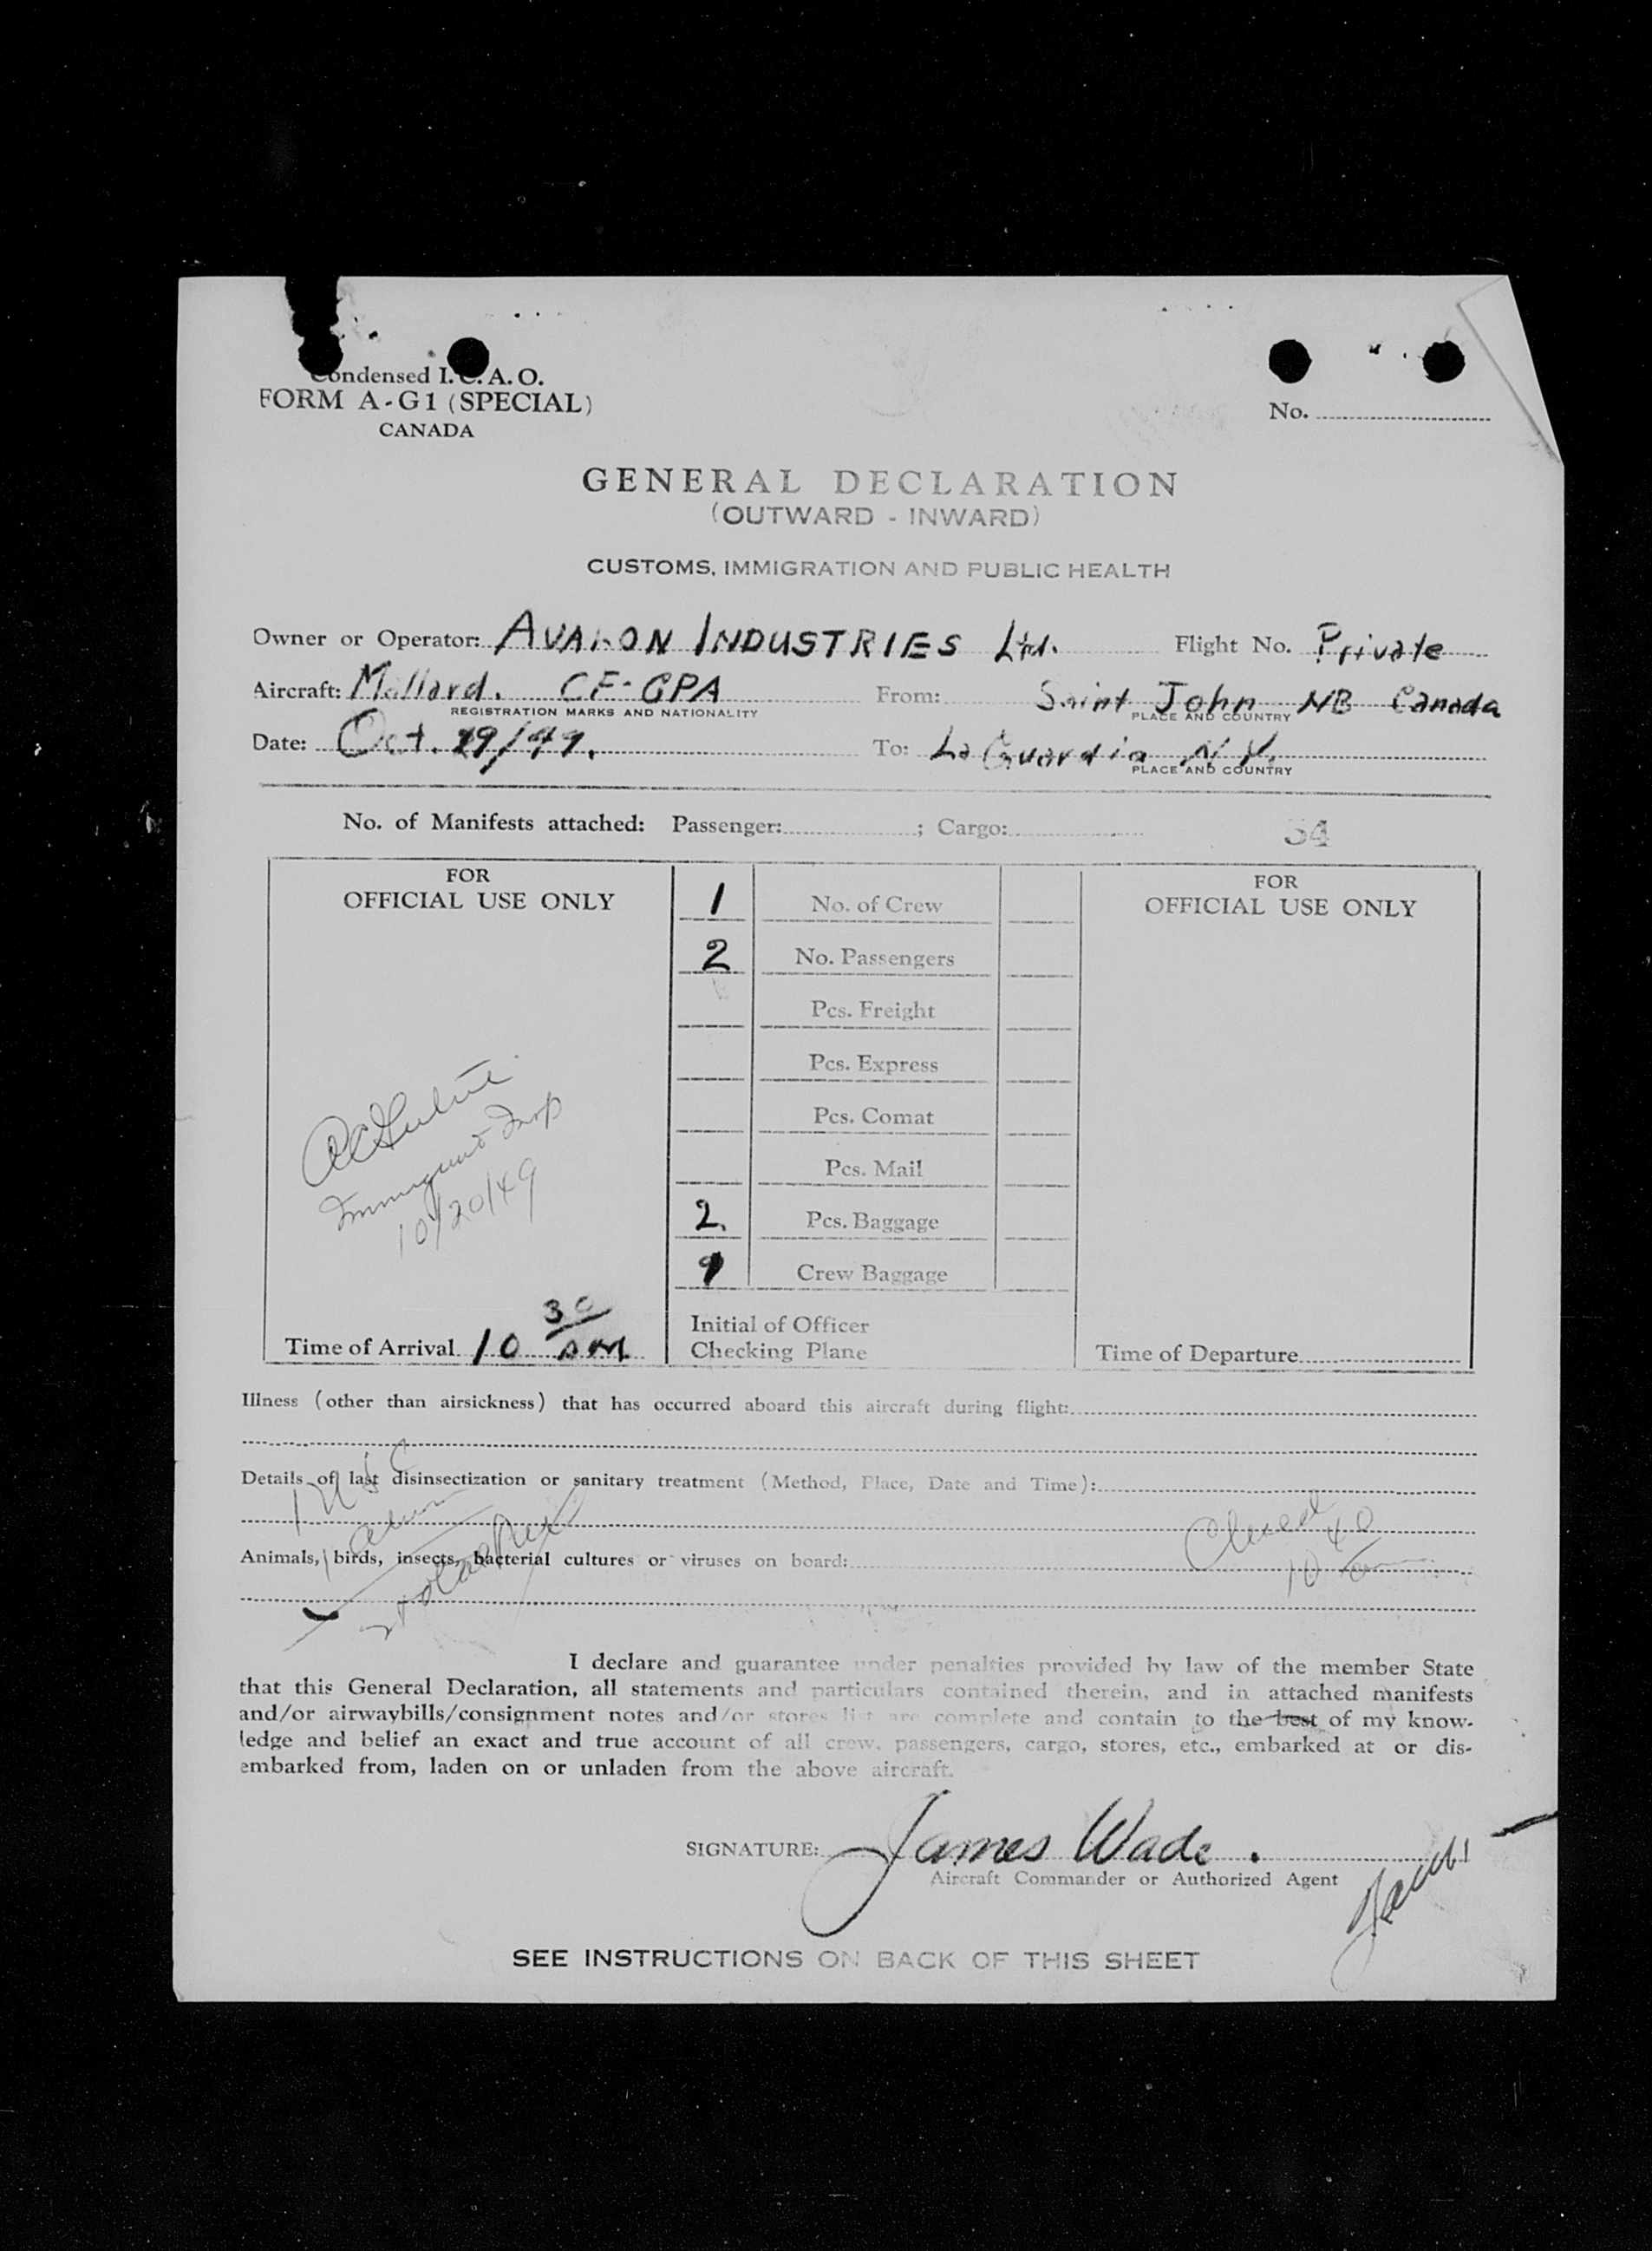 Condensed I.C.A.O.
FORM A-G1 (SPECIAL)
CANADA
No.
GENERAL DECLARATION
(OUTWARD - INWARD)
CUSTOMS, IMMIGRATION AND PUBLIC HEALTH
Owner or Operator: AVALON INDUSTRIES Ltd. Flight No. Private
Aircraft: Mallard. CF-GPA From: Saint John NB Canada
REGISTRATION MARKS AND NATIONALITY PLACE AND COUNTRY
Date: Oct. 19/49. To: La Guardia N.Y.
PLACE AND COUNTRY
No. of Manifests attached: Passenger: ; Cargo: 34
FOR
OFFICIAL USE ONLY
1 No. of Crew
FOR
OFFICIAL USE ONLY
2 No. Passengers
Pcs. Freight
Pcs. Express
Pcs. Comat
Pcs. Mail
2. Pcs. Baggage
1 Crew Baggage
Immigrant Insp
10/20/49
Time of Arrival 10 30 AM
Initial of Officer
Checking Plane
Time of Departure
Illness (other than airsickness) that has occurred aboard this aircraft during flight:
Details of last disinsectization or sanitary treatment (Method, Place, Date and Time):
1 USC
1 alien
Animals, birds, insects, bacterial cultures or viruses on board:
Cleared
10 40
I declare and guarantee under penalties provided by law of the member State
that this General Declaration, all statements and particulars contained therein, and in attached manifests
and/or airwaybills/consignment notes and/or stores list are complete and contain to the best of my know-
ledge and belief an exact and true account of all crew, passengers, cargo, stores, etc., embarked at or dis-
embarked from, laden on or unladen from the above aircraft.
SIGNATURE: James Wade.
Aircraft Commander or Authorized Agent
SEE INSTRUCTIONS ON BACK OF THIS SHEET